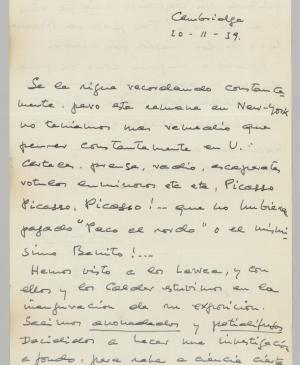 Cambridge
20-11-39.
Se la sigue recordando constante
mente. pero esta semana en New-York
no teníamos mas remedio que
pensar constantemente en U.:
Carteles, prensa, radio, escaparates
rotulos luminosos etc etc, Picasso
Picasso, Picasso!.. que no hubiera
pagado "Paco el sordo" o el mismi
simo Benito!...
Hemos visto a los Lewea, y con
ellos y los Calder estuvimos en la
inauguración de su exposicion.
Salimos anonadados y patidifusos
Decididos a hacer una investigación
a fondo, para saber a ciencia cierta